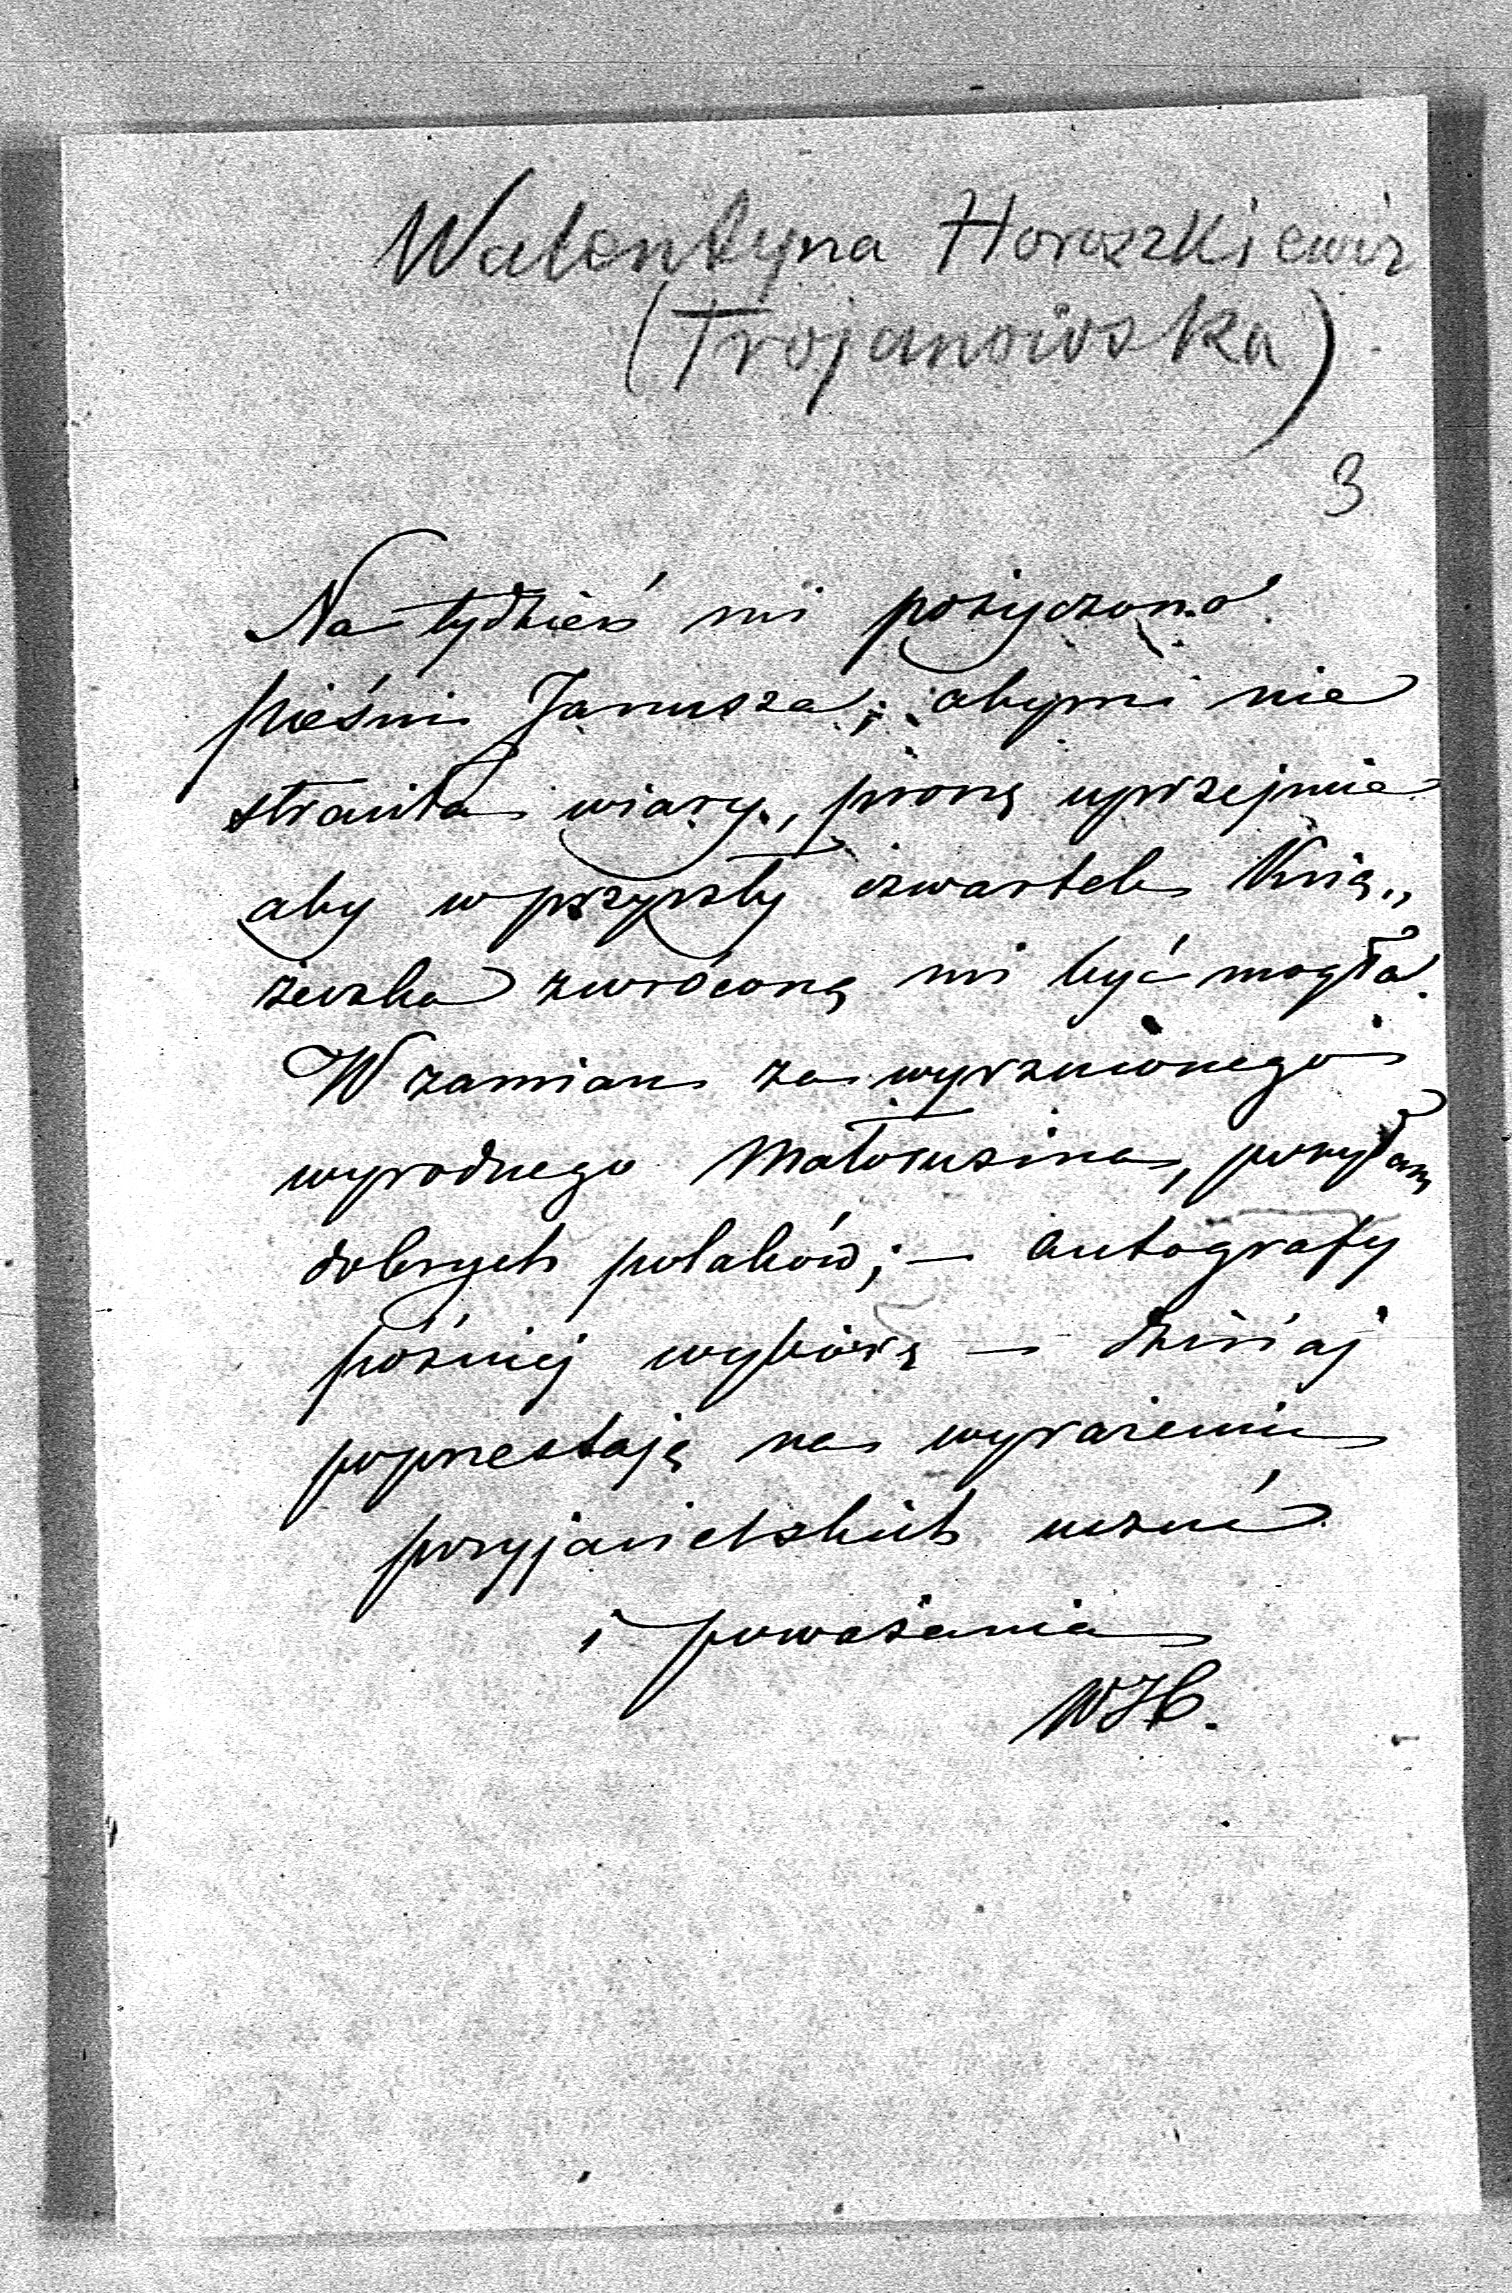 Walentyna Horoszkiewicz
(Trojanowska)
3
Na tydzień mi pożyczono
pieśni Janusza; abym nie
straciła wiary, proszę uprzejmie
aby w przyszły czwartek Ksią„
żeczka zwróconą mi być mogła.
W zamian za wyrzuconego
wyrodnego posyłam
dobrych polaków; — autografy
późniéj wybiorę — dzisiaj
poprzestaję na wyrażeniu
przyjacielskich uczuć
i poważania
WH.